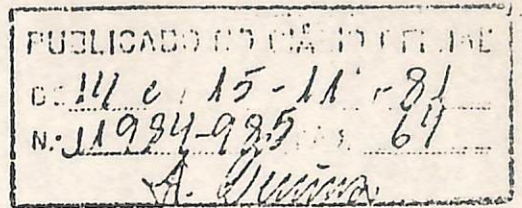 PUBLICADO NO DIÁRIO OFICIAL
DE 14 e 15-11-81
N.º 11984-985 PÁG. 64
A.